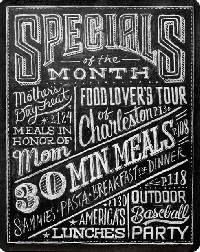 SPECIALS
of the
MONTH
Mother's
Day Treat
P.124
MEALS IN
HONOR OF
Mom
FOOD LOVER'S TOUR
of
Charleston
P.108
30 MIN MEALS
SAMMIES·PASTA·BREAKFAST for DINNER
P.118
P.130
AMERICA'S
LUNCHES
OUTDOOR
Baseball
PARTY